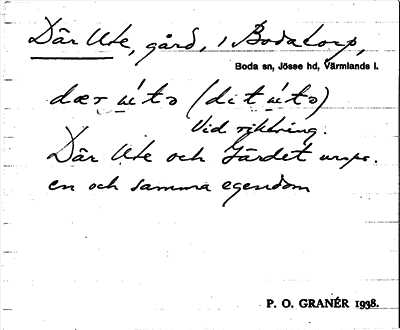 Där Ute, gård, i Bodatorp,
Boda sn, Jösse hd, Värmlands l.
dær ɯ́tə (dit ɯ́tə)
Vid riktning.
Där Ute och Gärdet urspr.
en och samma egendom
P. O. GRANÉR 1938.